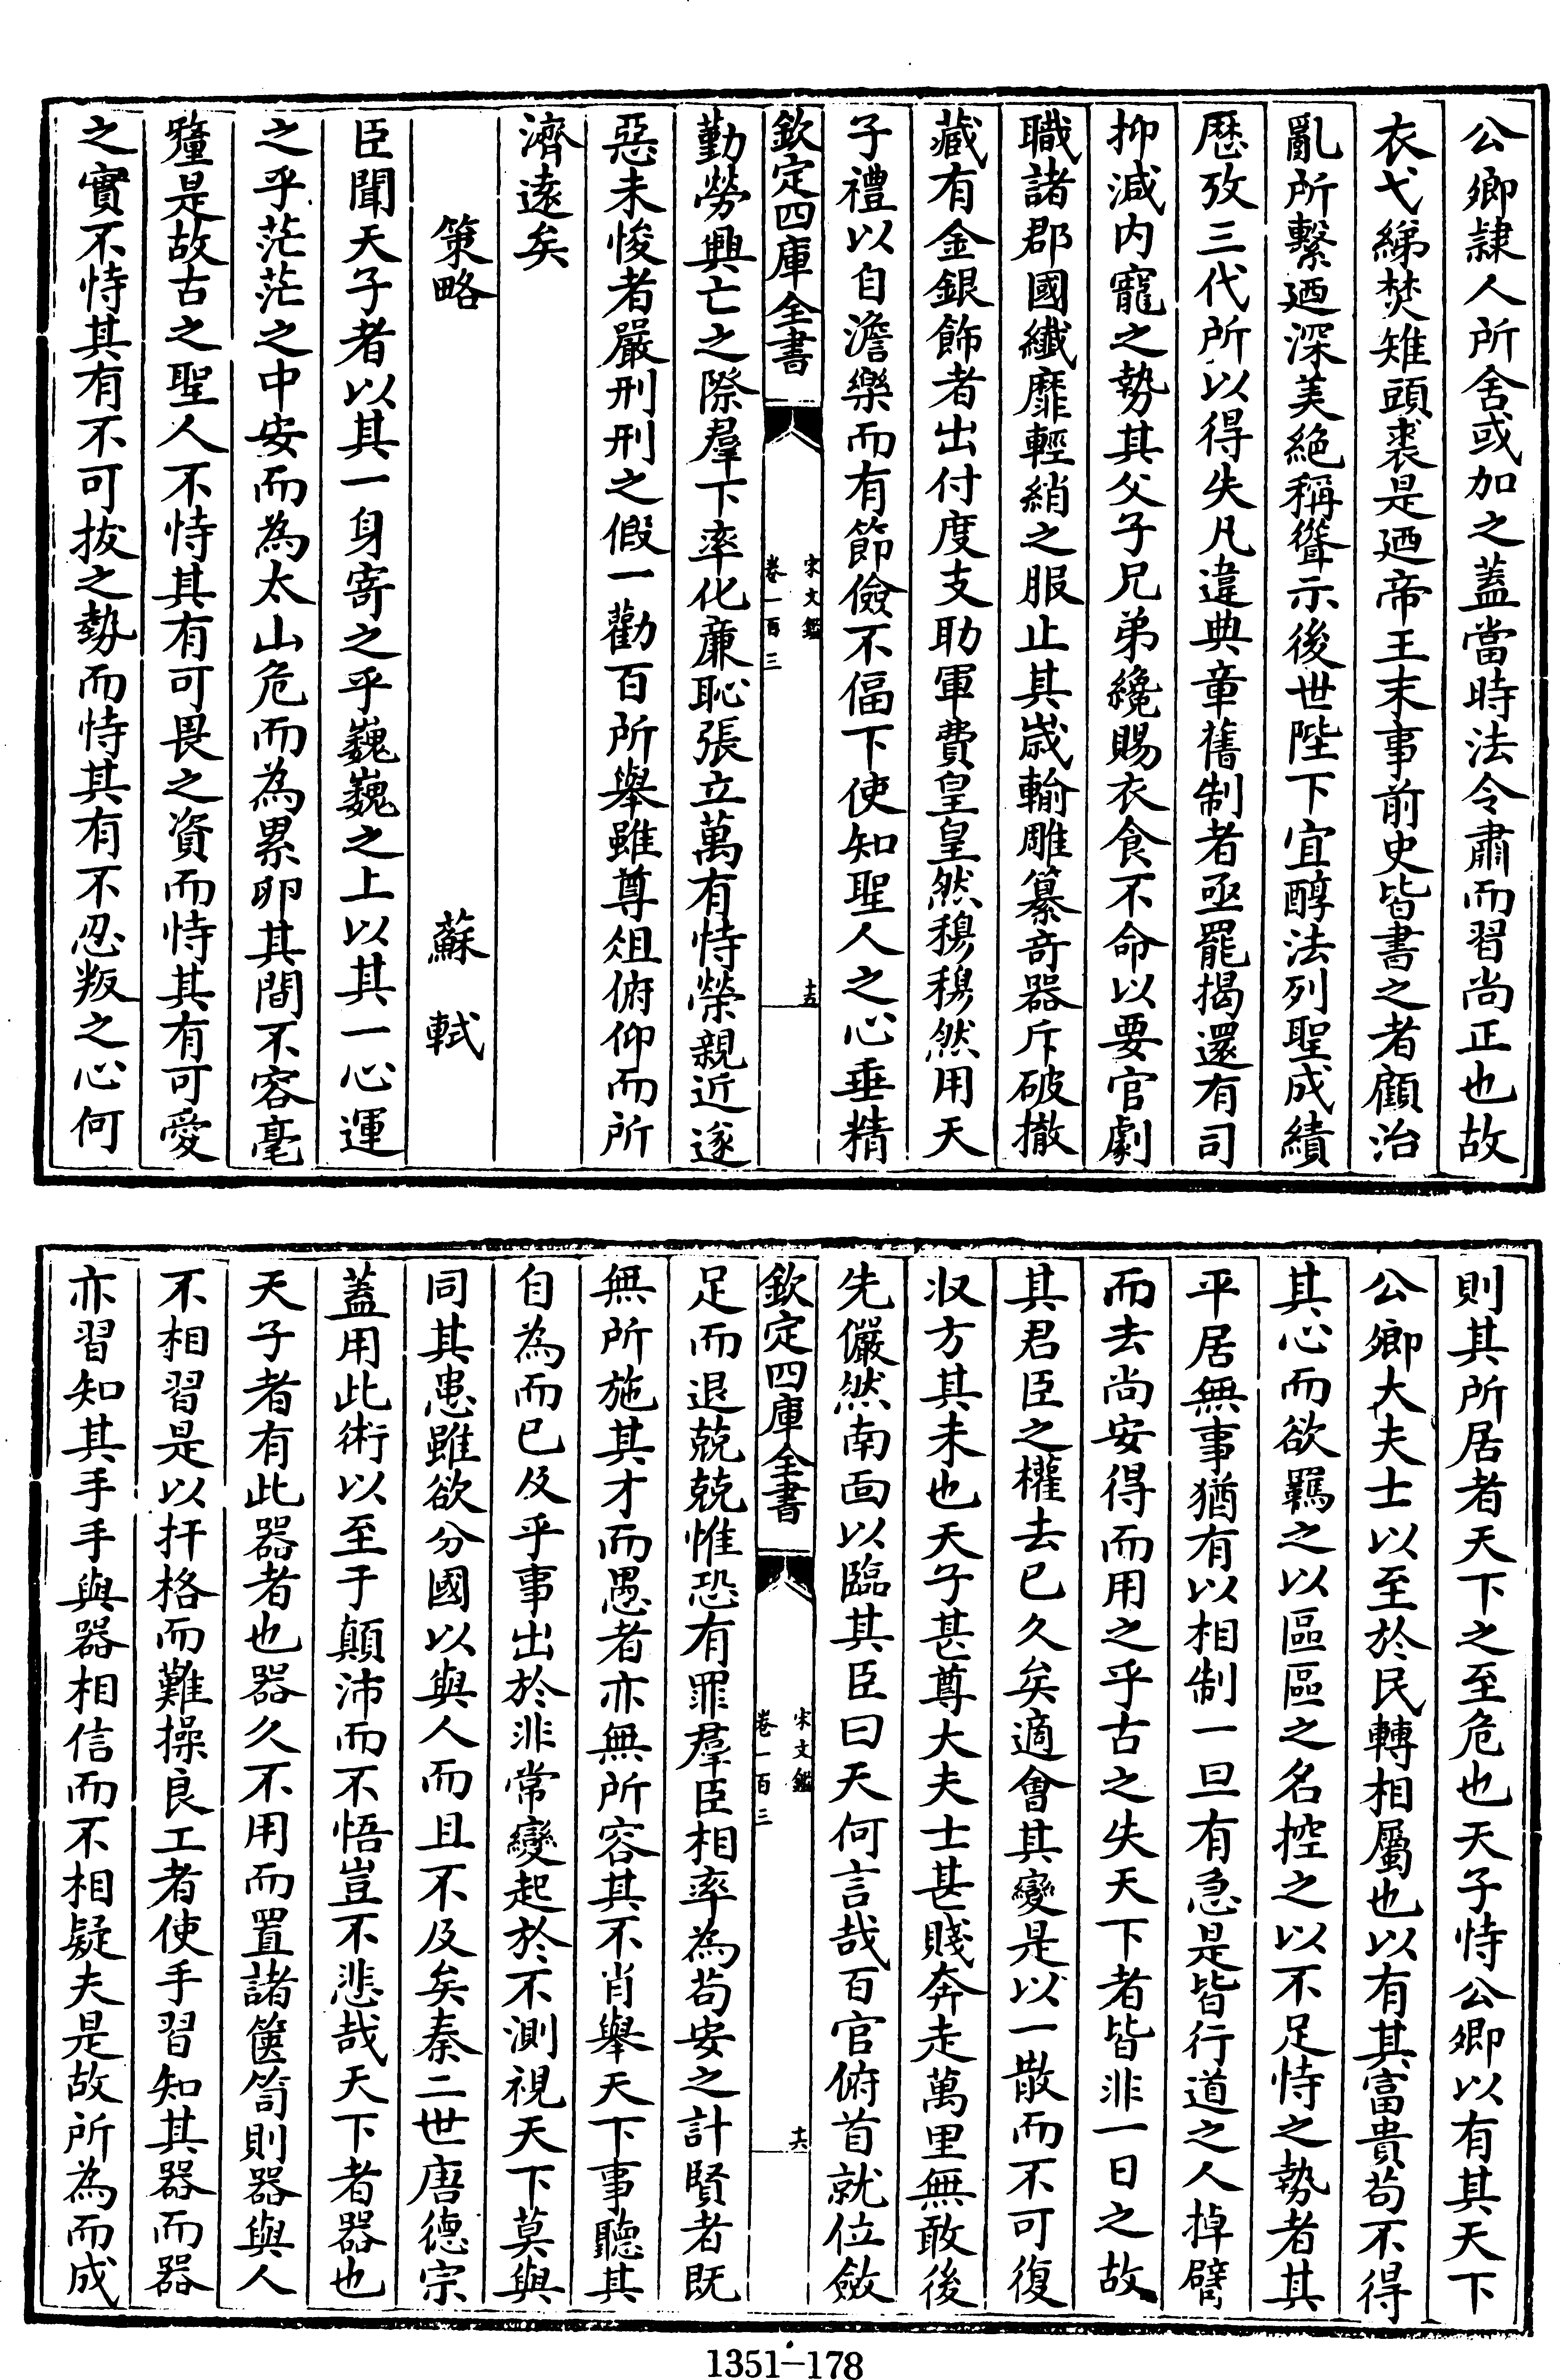 公卿隷人所舍或加之蓋當時法令肅而習尚正也故
衣弋綈焚雉頭裘是廼帝王末事前史皆書之者顧治
亂所繫廼深美絶稱聳示後世陛下宜醇法列聖成績
歴攷三代所以得失凡違典章舊制者亟罷揭還有司
抑減内寵之勢其父子兄弟纔賜衣食不命以要官劇
職諸郡國纖靡輕綃之服止其嵗輸雕纂竒器斥破撤
藏有金銀飾者出付度支助軍費皇皇然穆穆然用天
子禮以自澹樂而有節儉不偪下使知聖人之心垂精
欽定四庫全書
宋文鑑
卷一百三
十五
勤勞興亡之際羣下率化亷恥張立萬有恃榮親近遂
惡未悛者嚴刑刑之假一勸百所舉雖尊俎俯仰而所
濟逺矣
策略
蘇軾
臣聞天子者以其一身寄之乎巍巍之上以其一心運
之乎茫茫之中安而為太山危而為累卵其間不容毫
釐是故古之聖人不恃其有可畏之資而恃其有可愛
之實不恃其有不可拔之勢而恃其有不忍叛之心何
則其所居者天下之至危也天子恃公卿以有其天下
公卿大夫士以至於民轉相屬也以有其富貴茍不得
其心而欲羈之以區區之名控之以不足恃之勢者其
平居無事猶有以相制一旦有急是皆行道之人掉臂
而去尚安得而用之乎古之失天下者皆非一日之故
其君臣之權去已久矣適會其變是以一散而不可復
收方其未也天子甚尊大夫士甚賤奔走萬里無敢後
先儼然南面以臨其臣曰天何言哉百官俯首就位斂
欽定四庫全書
宋文鑑
卷一百三
十六
足而退兢兢惟恐有罪羣臣相率為茍安之計賢者既
無所施其才而愚者亦無所容其不肖舉天下事聽其
自為而已及乎事出於非常變起於不測視天下莫與
同其患雖欲分國以與人而且不及矣秦二世唐德宗
蓋用此術以至于顛沛而不悟豈不悲哉天下者器也
天子者有此器者也器久不用而置諸篋笥則器與人
不相習是以扞格而難操良工者使手習知其器而器
亦習知其手手與器相信而不相疑夫是故所為而成
1351-178